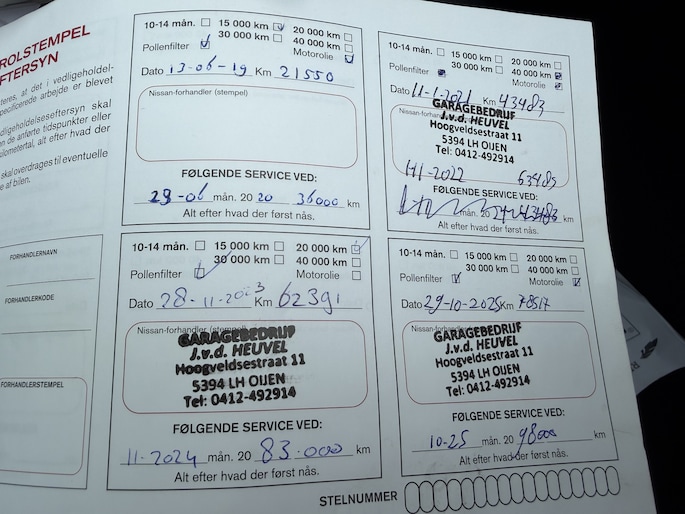 ROLSTEMPEL
FTERSYN
teres, at det i vedligeholdel-
pecificerede arbejde er blevet
dligeholdelseseftersyn skal
en de anførte tidspunkter eller
kilometertal, alt efter hvad der
skal overdrages til eventuelle
e af bilen.
FORHANDLERNAVN
FORHANDLERKODE
FORHANDLERSTEMPEL
10-14 mån. 15 000 km 20 000 km
30 000 km 40 000 km
Pollenfilter Motorolie
Dato 13-06-19 Km 21550
Nissan-forhandler (stempel)
FØLGENDE SERVICE VED:
29-06 mån. 20 20 36000 km
Alt efter hvad der først nås.
10-14 mån. 15 000 km 20 000 km
30 000 km 40 000 km
Pollenfilter Motorolie
Dato 11-1-2021 Km 43483
Nissan-forhandler
GARAGEBEDRIJF
J.v.d. HEUVEL
Hoogveldsestraat 11
5394 LH OIJEN
Tel: 0412-492914
11-1-2022 63483
FØLGENDE SERVICE VED:
mån. 20 km
Alt efter hvad der først nås.
10-14 mån. 15 000 km 20 000 km
30 000 km 40 000 km
Pollenfilter Motorolie
Dato 28-11-2023 Km 62391
Nissan-forhandler (stempel)
GARAGEBEDRIJF
J.v.d. HEUVEL
Hoogveldsestraat 11
5394 LH OIJEN
Tel: 0412-492914
FØLGENDE SERVICE VED:
11-2024 mån. 20 83.000 km
Alt efter hvad der først nås.
10-14 mån. 15 000 km 20 000 km
30 000 km 40 000 km
Pollenfilter Motorolie
Dato 29-10-2025 Km 78517
Nissan-forhandler
GARAGEBEDRIJF
J.v.d. HEUVEL
Hoogveldsestraat 11
5394 LH OIJEN
Tel: 0412-492914
FØLGENDE SERVICE VED:
10-25 mån. 20 98000 km
Alt efter hvad der først nås.
STELNUMMER